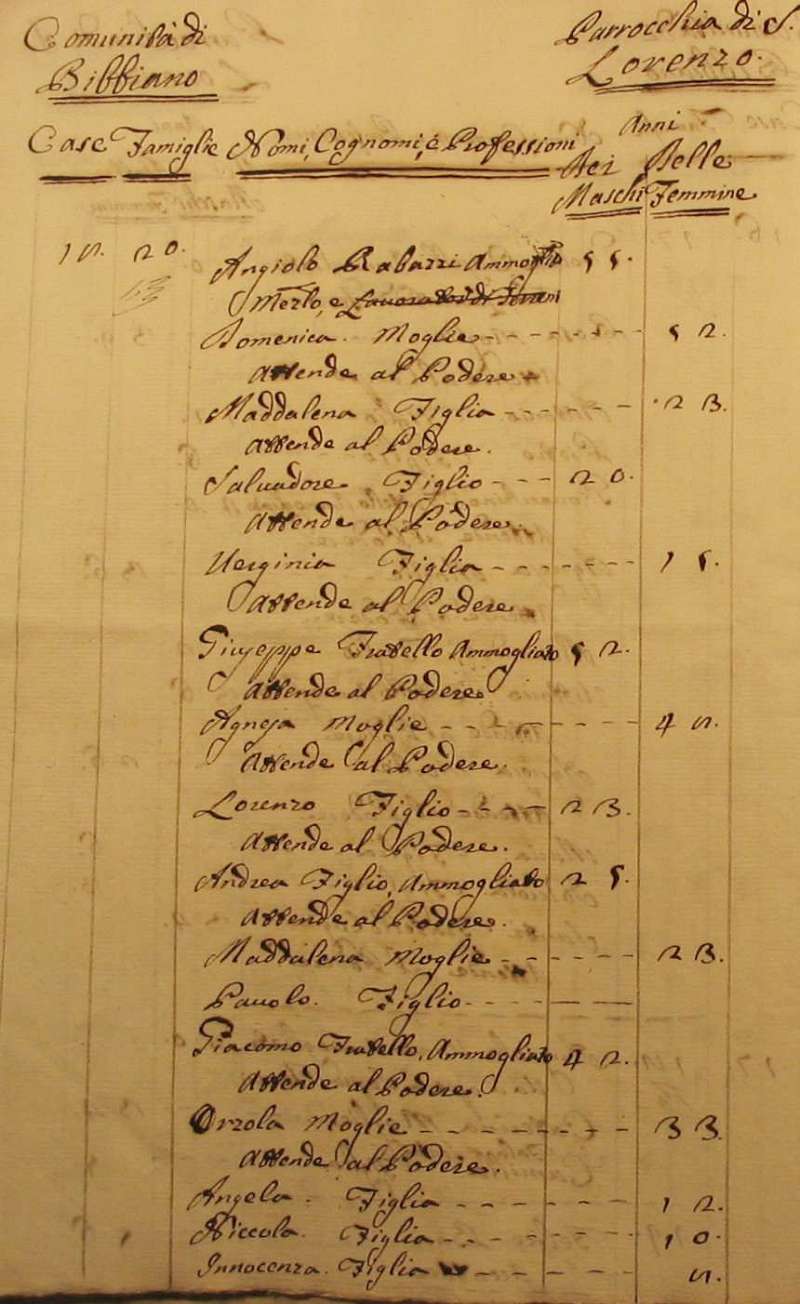 Comunità di Parrocchia di S.
Bibbiano Lorenzo.
Anni
Case Famiglie Nomi, Cognomi, e Professioni Dei Delle
Maschi Femmine
20. Angiolo Rabazzi Ammogliato 55.
Merlo, e Lavorador di Terreni
Domenica. Moglie 52.
Attende al Podere
Maddalena Figlia 23.
Attende al Podere.
Salvadore. Figlio 20.
Attende al Podere.
Verginia Figlia 15.
Attende al Podere.
Giuseppe Fratello Ammogliato 52.
Attende al Podere
Agnesa Moglie 4
Attende al Podere.
Lorenzo Figlio 23.
Attende al Podere.
Andrea Figlio, Ammogliato 25.
Attende al Podere.
Maddalena Moglie 23.
Pauolo. Figlio
Giacomo Fratello, Ammogliato 42.
Attende al Podere.
Orzola Moglie 33.
Attende al Podere.
Angela. Figlia 12.
Niccola. Figlia 10.
Innocenza. Figlia